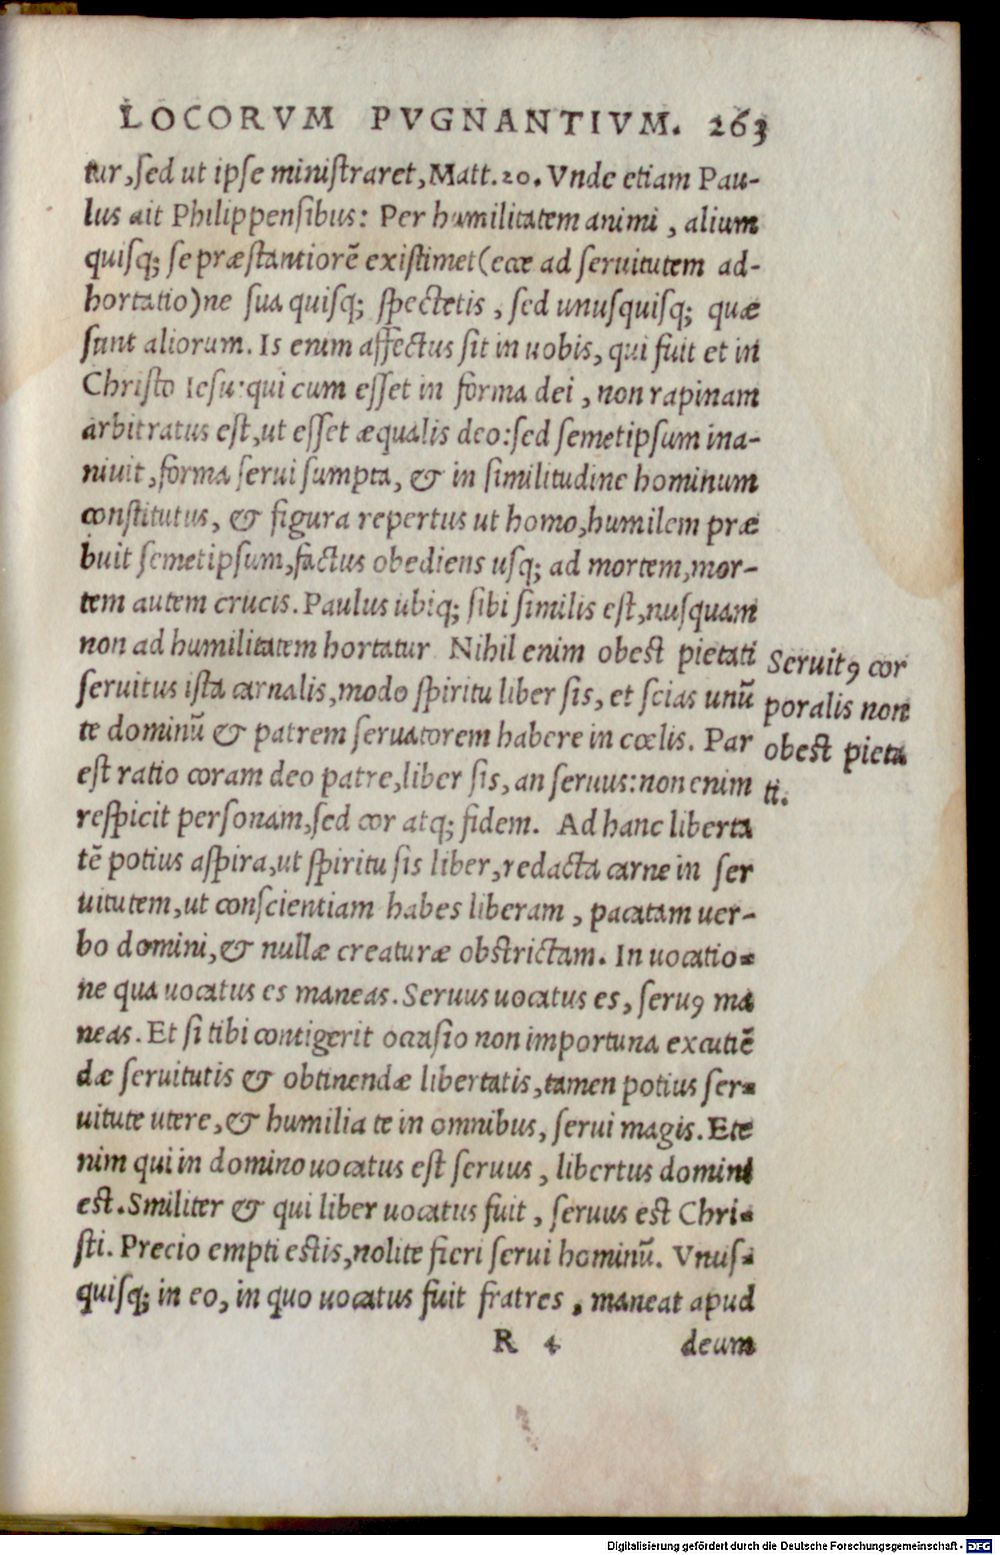 LOCORVM PVGNANTIVM. 263
tur, sed ut ipse ministraret, Matt. 20. Vnde etiam Pau-
lus ait Philippensibus: Per humilitatem animi, alium
quisq; se præstantiorē existimet (ecce ad seruitutem ad-
hortatio) ne sua quisq; spectetis, sed unusquisq; quæ
sunt aliorum. Is enim affectus sit in uobis, qui fuit et in
Christo Iesu: qui cum esset in forma dei, non rapinam
arbitratus est, ut esset æqualis deo: sed semetipsum ina-
niuit, forma serui sumpta, & in similitudine hominum
constitutus, & figura repertus ut homo, humilem præ
buit semetipsum, factus obediens usq; ad mortem, mor-
tem autem crucis. Paulus ubiq; sibi similis est, nusquam
non ad humilitatem hortatur Nihil enim obest pietati
seruitus ista carnalis, modo spiritu liber sis, et scias unū
te dominū & patrem seruatorem habere in cœlis. Par
est ratio coram deo patre, liber sis, an seruus: non enim
respicit personam, sed cor atq; fidem. Ad hanc liberta
tē potius aspira, ut spiritu sis liber, redacta carne in ser
uitutem, ut conscientiam habes liberam, pacatam uer-
bo domini, & nullæ creaturæ obstrictam. In uocatio-
ne qua uocatus es maneas. Seruus uocatus es, seruꝰ ma
neas. Et si tibi contigerit occasio non importuna excutiē
dæ seruitutis & obtinendæ libertatis, tamen potius ser-
uitute utere, & humilia te in omnibus, serui magis. Ete
nim qui in domino uocatus est seruus, libertus domini
est. Smiliter & qui liber uocatus fuit, seruus est Chri-
sti. Precio empti estis, nolite fieri serui hominū. Vnus-
quisq; in eo, in quo uocatus fuit fratres, maneat apud
R 4 deum
Seruitꝰ cor
poralis non
obest pieta
ti.
Digitalisierung gefördert durch die Deutsche Forschungsgemeinschaft - DFG